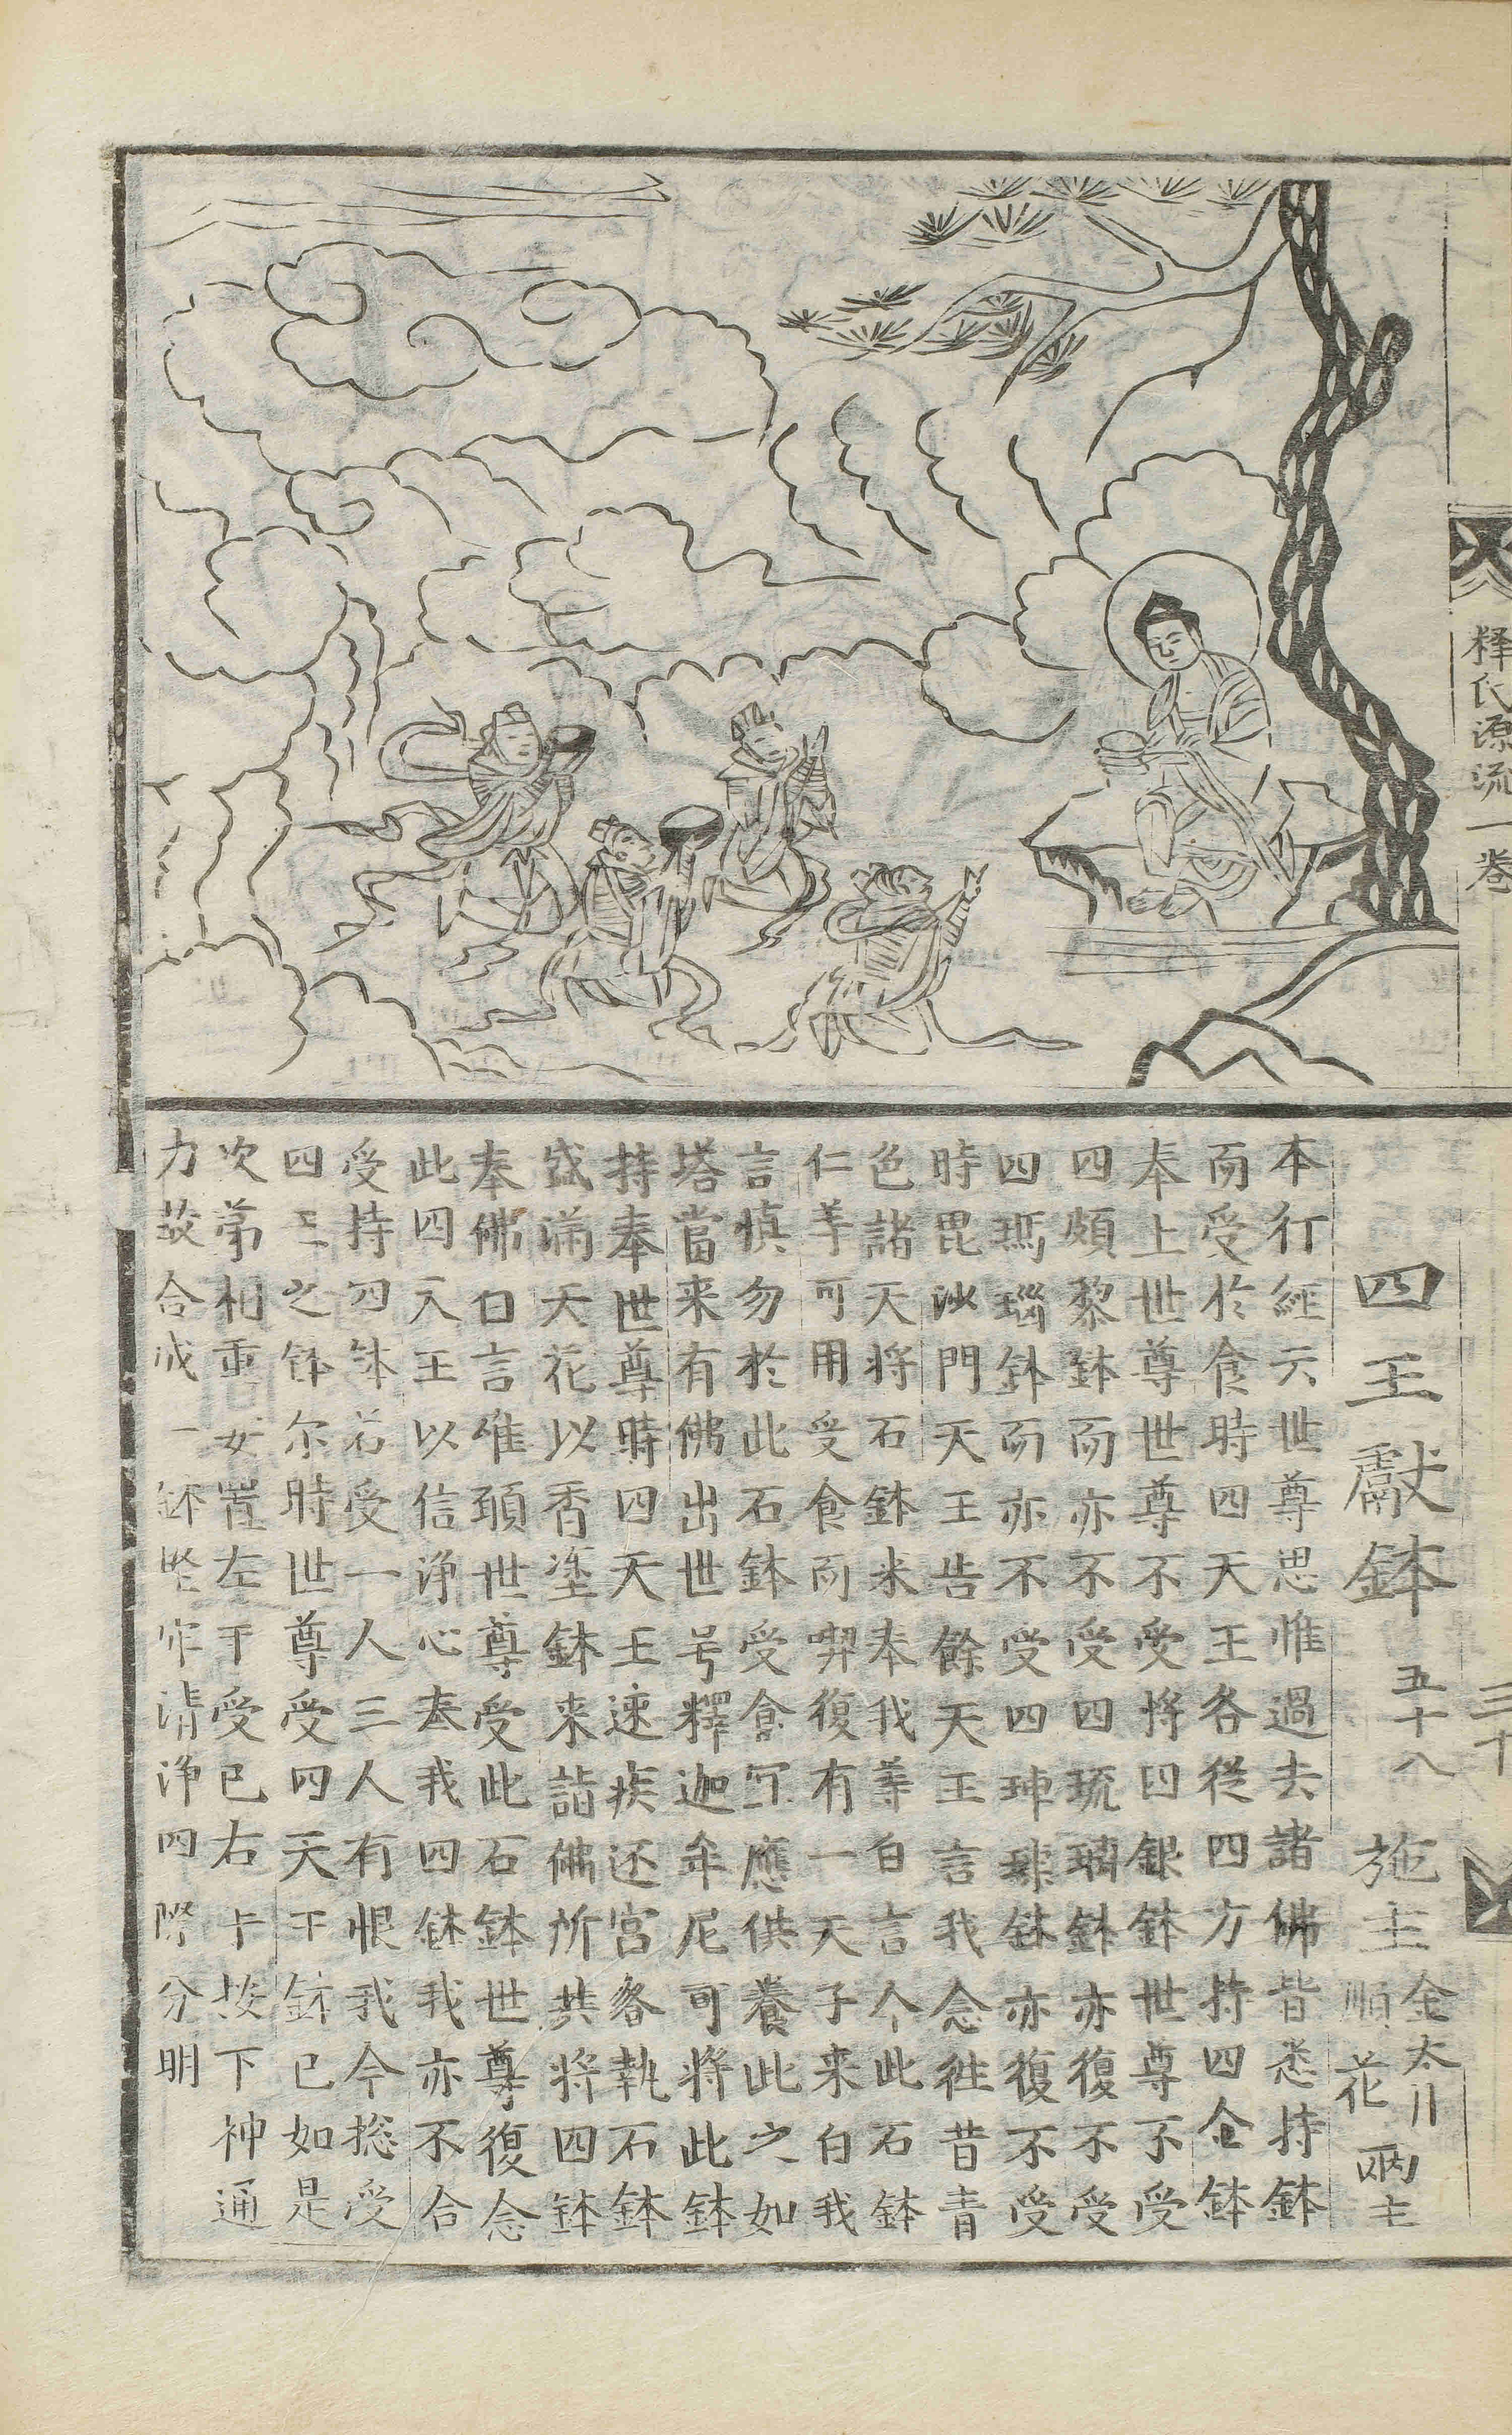 釋氏源流一卷
三十
四王獻鉢 五十八 施主 金太川 順花 兩主
本行經云世尊思惟過去諸佛皆悉持鉢
而受於食時四天王各從四方持四金鉢
奉上世尊世尊不受將四銀鉢世尊不受
四頗黎鉢而亦不受四琉璃鉢亦復不受
四瑪瑙鉢而亦不受四硨磲鉢亦復不受
時毘沙門天王告餘天王言我念往昔青
色諸天將石鉢来奉我等白言今此石鉢
仁等可用受食而喫復有一天子来白我
言慎勿於此石鉢受食宜應供養此之如
塔當来有佛出世号釋迦牟尼可將此鉢
持奉世尊時四天王速疾还宮各執石鉢
盛滿天花以香塗鉢来詣佛所共將四鉢
奉佛白言唯願世尊受此石鉢世尊復念
此四天王以信淨心奉我四鉢我亦不合
受持四鉢若受一人三人有恨我今捴受
四王之鉢尔時世尊受四天王鉢已如是
次第相重安置左手受已右手按下神通
力故合成一鉢堅牢清淨四際分明